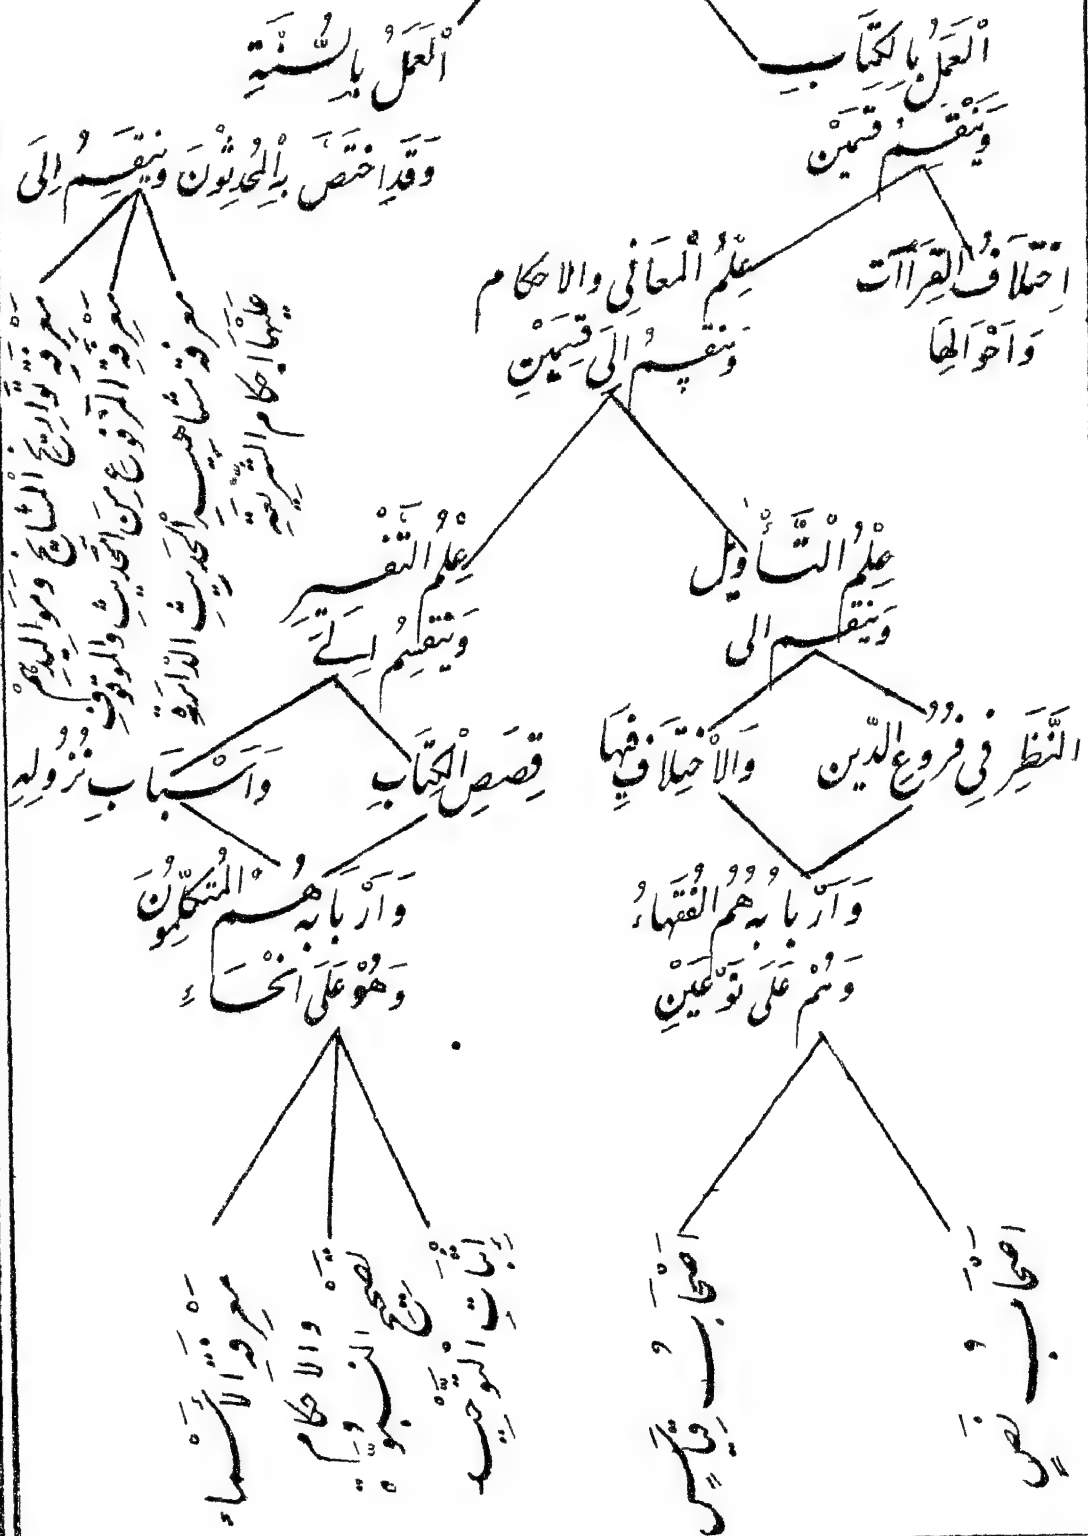 اَلْعَمَلُ بِالْكِتَابِ
وَيَنْقَسِمُ قِسْمَيْنِ
اِخْتِلَافُ الْقِرَاآت
وَاَحْوَالِهَا
عِلْمُ الْمَعَانِي والاحكام
وَينقسِمُ اِلَى قِسْمَيْنِ
عِلْمُ التَّأْوِيل
وَينقسم الى
النَّظَرِ فِي فُرُوعِ الدِّين
وَالْاِخْتِلَافِ فِيهَا
وَاَرْبَابُهُ هُمُ الْفُقَهَاءُ
وَهُمْ عَلَى نَوْعَيْنِ
اَصْحَابُ نَصٍّ
اَصْحَابُ قِيَاسٍ
عِلْمُ التَّفْسِير
وَيَنْقَسِمُ اِلَى
قِصَصِ الْكِتَابِ
وَاَسْبَابِ نُزُولِهِ
وَاَرْبَابُهُ هُمُ الْمُتَكَلِّمُونَ
وَهُوَ عَلَى اَنْحَاءٍ
إِثْبَاتِ التَّوْحِيد
تصحيح النبوّة
والاحكام
مَعْرِفَةِ الْأَسْمَاء
اَلْعَمَلُ بِالسُّنَّةِ
وَقَدِ اخْتَصَّ بِهِ الْمُحَدِّثُونَ وَيَنْقَسِمُ اِلَى
معرفة مشاهير الْحَدِيثِ الدائرة
عليها احكام الشَّرِيعَةِ
مَعْرِفَةِ الْمَرْفُوعِ مِنَ الْحَدِيثِ والموقوفِ
مَعْرِفَةِ تَوَارِيخِ الْمَشَايِخِ وَمَوَالِيدِهِمْ